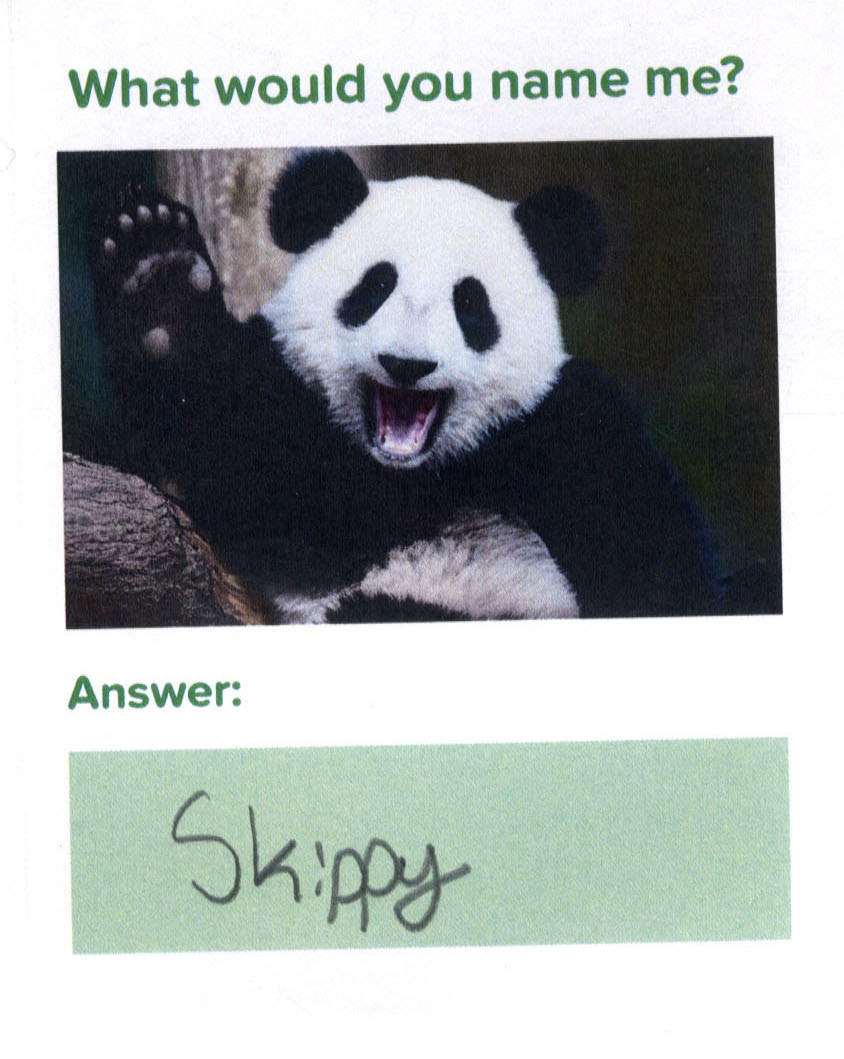 What would you name me?
Answer:
Skippy